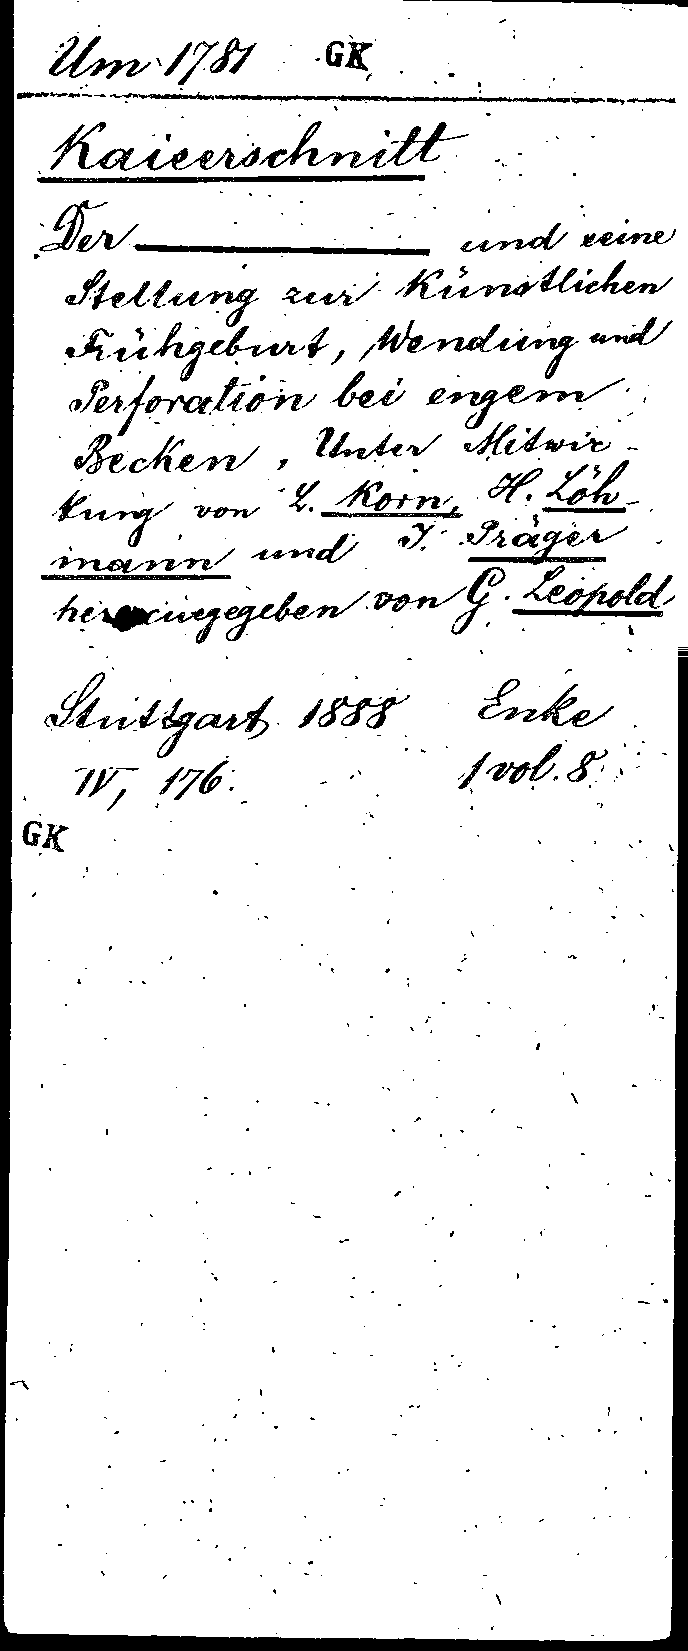 Um 1781 GK
Kaiserschnitt
Der ——— und seine
Stellung zur Künstlichen
Frühgeburt, Wendung und
Perforation bei engem
Becken, Unter Mitwir-
kung von L. Korn, H. Löh-
mann und J. Präger
herausgegeben von G. Leopold
Stuttgart 1888 Enke
IV, 176. 1 vol. 8.
GK